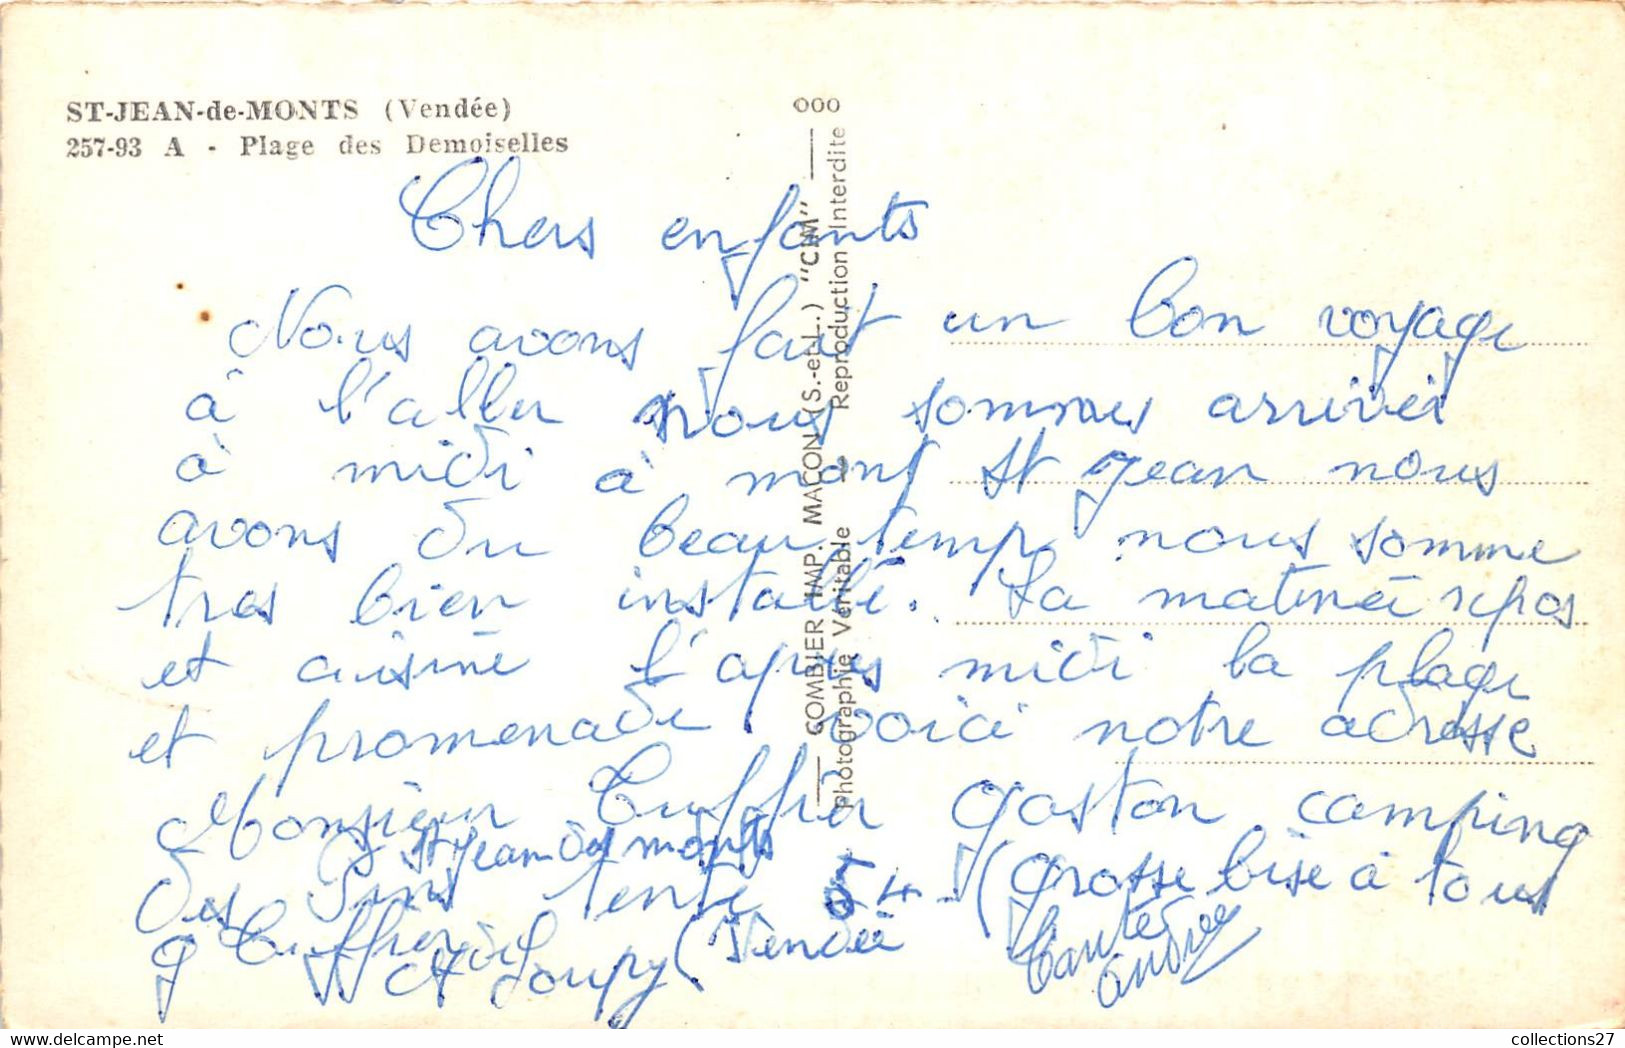 ST-JEAN-de-MONTS (Vendée)
257-93 A - Plage des Demoiselles
Chers enfants
Nous avons fait un bon voyage
à l'aller nous sommes arrivéi
à midi à mont St Jean nous
avons du beau temp nous somme
tres bien installé. La matinéi repos
et cuisine l'apres midi la plage
et promenade voici notre adresse
Monsieur Cuffier Gaston camping
St Jean des monts
des Pins tente 54 (grosse bise à tous
G Cuffier et Loupy (Vendéé
Tante Andrée
ooo
COMBIER IMP. MACON (S.-et-L.) "CIM"
Photographie Véritable — Reproduction Interdite
collections27